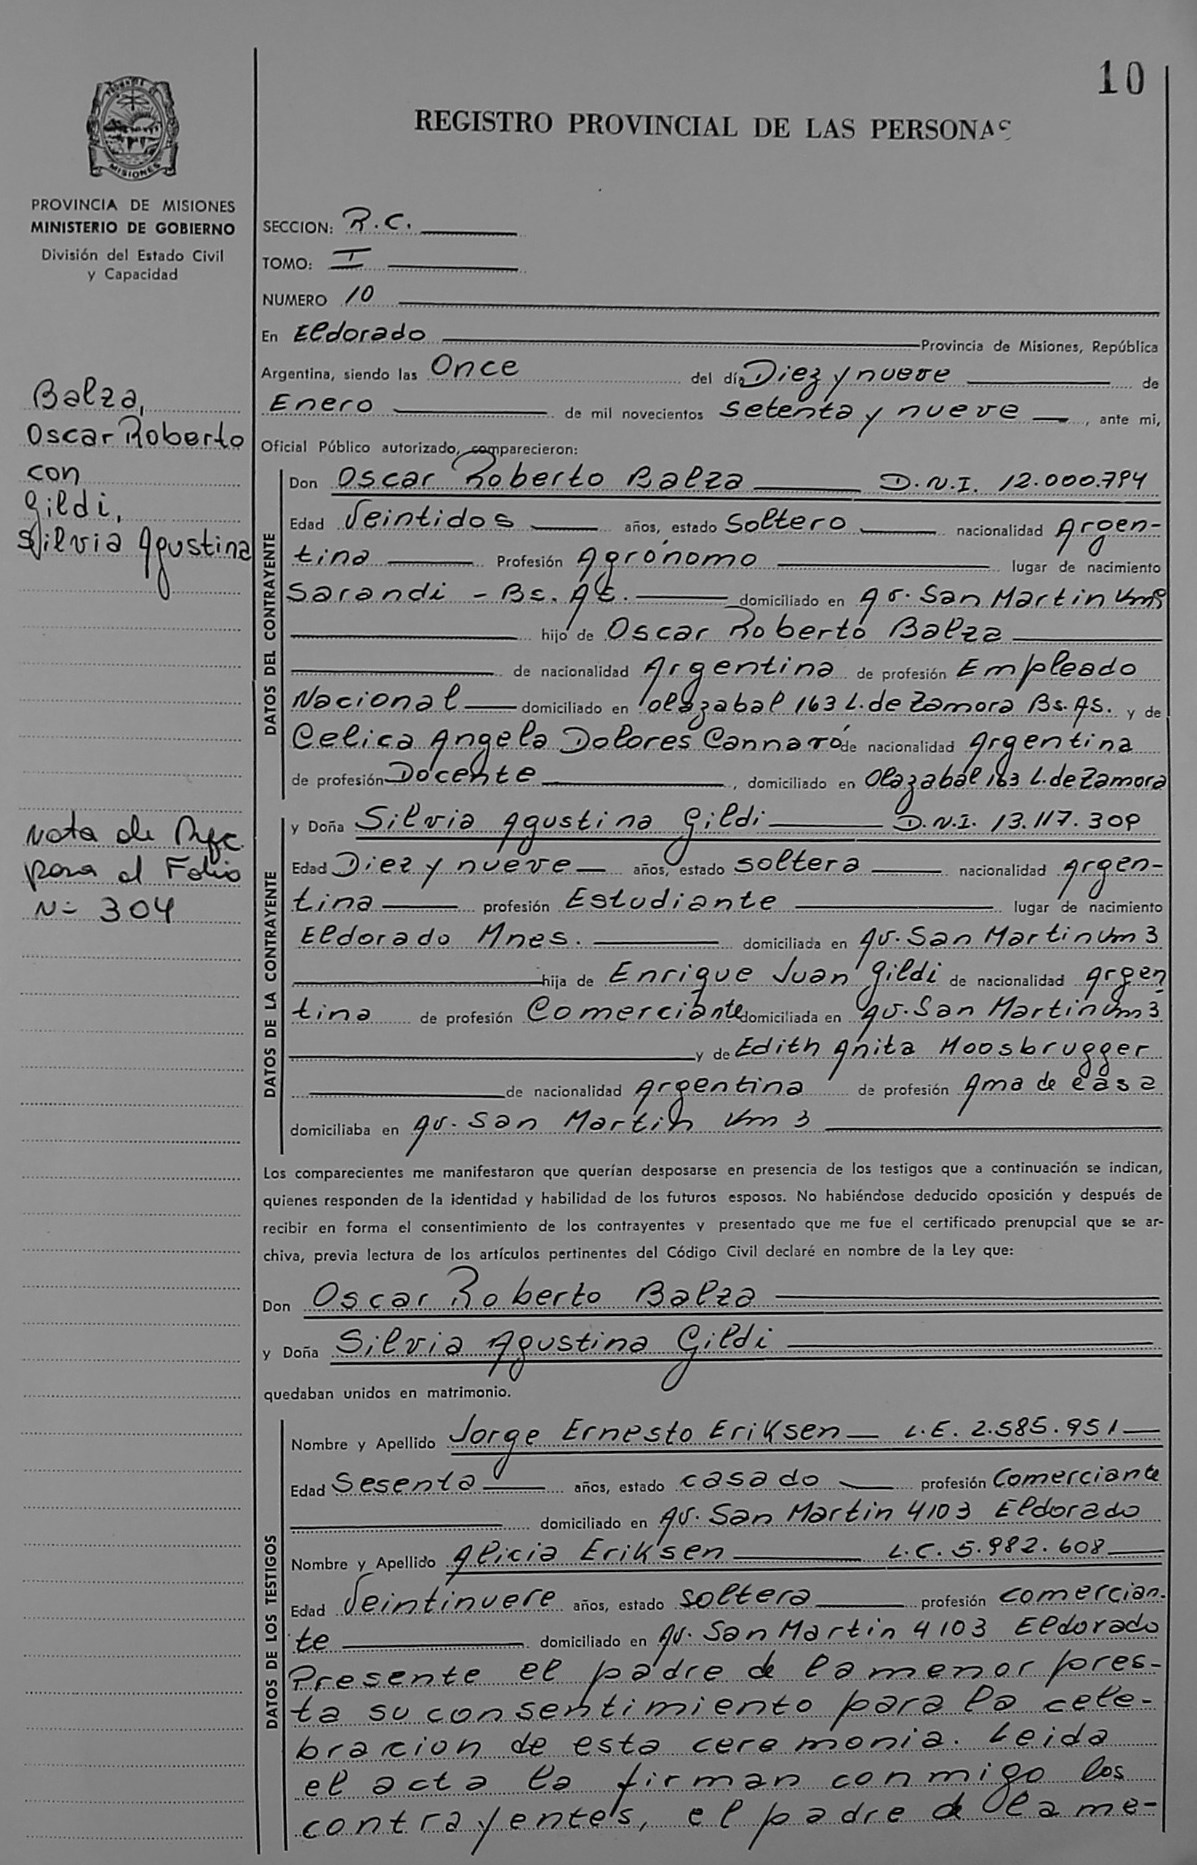 10
REGISTRO PROVINCIAL DE LAS PERSONAS
MISIONES
PROVINCIA DE MISIONES
MINISTERIO DE GOBIERNO
División del Estado Civil
y Capacidad
SECCION: R.C.
TOMO: I
NUMERO 10
En Eldorado Provincia de Misiones, República
Argentina, siendo las Once del día Diez y nueve de
Enero de mil novecientos setenta y nueve, ante mi,
Oficial Público autorizado, comparecieron:
Balza,
Oscar Roberto
con
Gildi,
Silvia Agustina
DATOS DEL CONTRAYENTE
Don Oscar Roberto Balza D.N.I. 12.000.794
Edad Veintidos años, estado Soltero nacionalidad Argen-
tina Profesión Agrónomo lugar de nacimiento
Sarandi - Bs. As. domiciliado en Av. San Martin Km
hijo de Oscar Roberto Balza
de nacionalidad Argentina de profesión Empleado
Nacional domiciliado en Olazabal 163 L. de Zamora Bs. As. y de
Celica Angela Dolores Cannaró de nacionalidad Argentina
de profesión Docente, domiciliado en Olazabal 163 L. de Zamora
Nota de
para el Folio
N= 304
DATOS DE LA CONTRAYENTE
y Doña Silvia Agustina Gildi D.N.I. 13.117.309
Edad Diez y nueve años, estado soltera nacionalidad Argen-
tina profesión Estudiante lugar de nacimiento
Eldorado Mnes. domiciliada en Av. San Martin Km 3
hija de Enrique Juan Gildi de nacionalidad Argen
tina de profesión Comerciante domiciliada en Av. San Martin Km 3
y de Edith Anita Moosbrugger
de nacionalidad Argentina de profesión Ama de casa
domiciliaba en Av. San Martin Km 3
Los comparecientes me manifestaron que querían desposarse en presencia de los testigos que a continuación se indican,
quienes responden de la identidad y habilidad de los futuros esposos. No habiéndose deducido oposición y después de
recibir en forma el consentimiento de los contrayentes y presentado que me fue el certificado prenupcial que se ar-
chiva, previa lectura de los artículos pertinentes del Código Civil declaré en nombre de la Ley que:
Don Oscar Roberto Balza
y Doña Silvia Agustina Gildi
quedaban unidos en matrimonio.
DATOS DE LOS TESTIGOS
Nombre y Apellido Jorge Ernesto Eriksen L.E. 2.585.951
Edad Sesenta años, estado casado profesión Comerciante
domiciliado en Av. San Martin 4103 Eldorado
Nombre y Apellido Alicia Eriksen L.C. 5.982.608
Edad Veintinueve años, estado soltera profesión comercian-
te domiciliado en Av. San Martin 4103 Eldorado
Presente el padre de la menor pres-
ta su consentimiento para la cele-
bracion de esta ceremonia. Leida
el acta la firman conmigo los
contrayentes, el padre de la me-